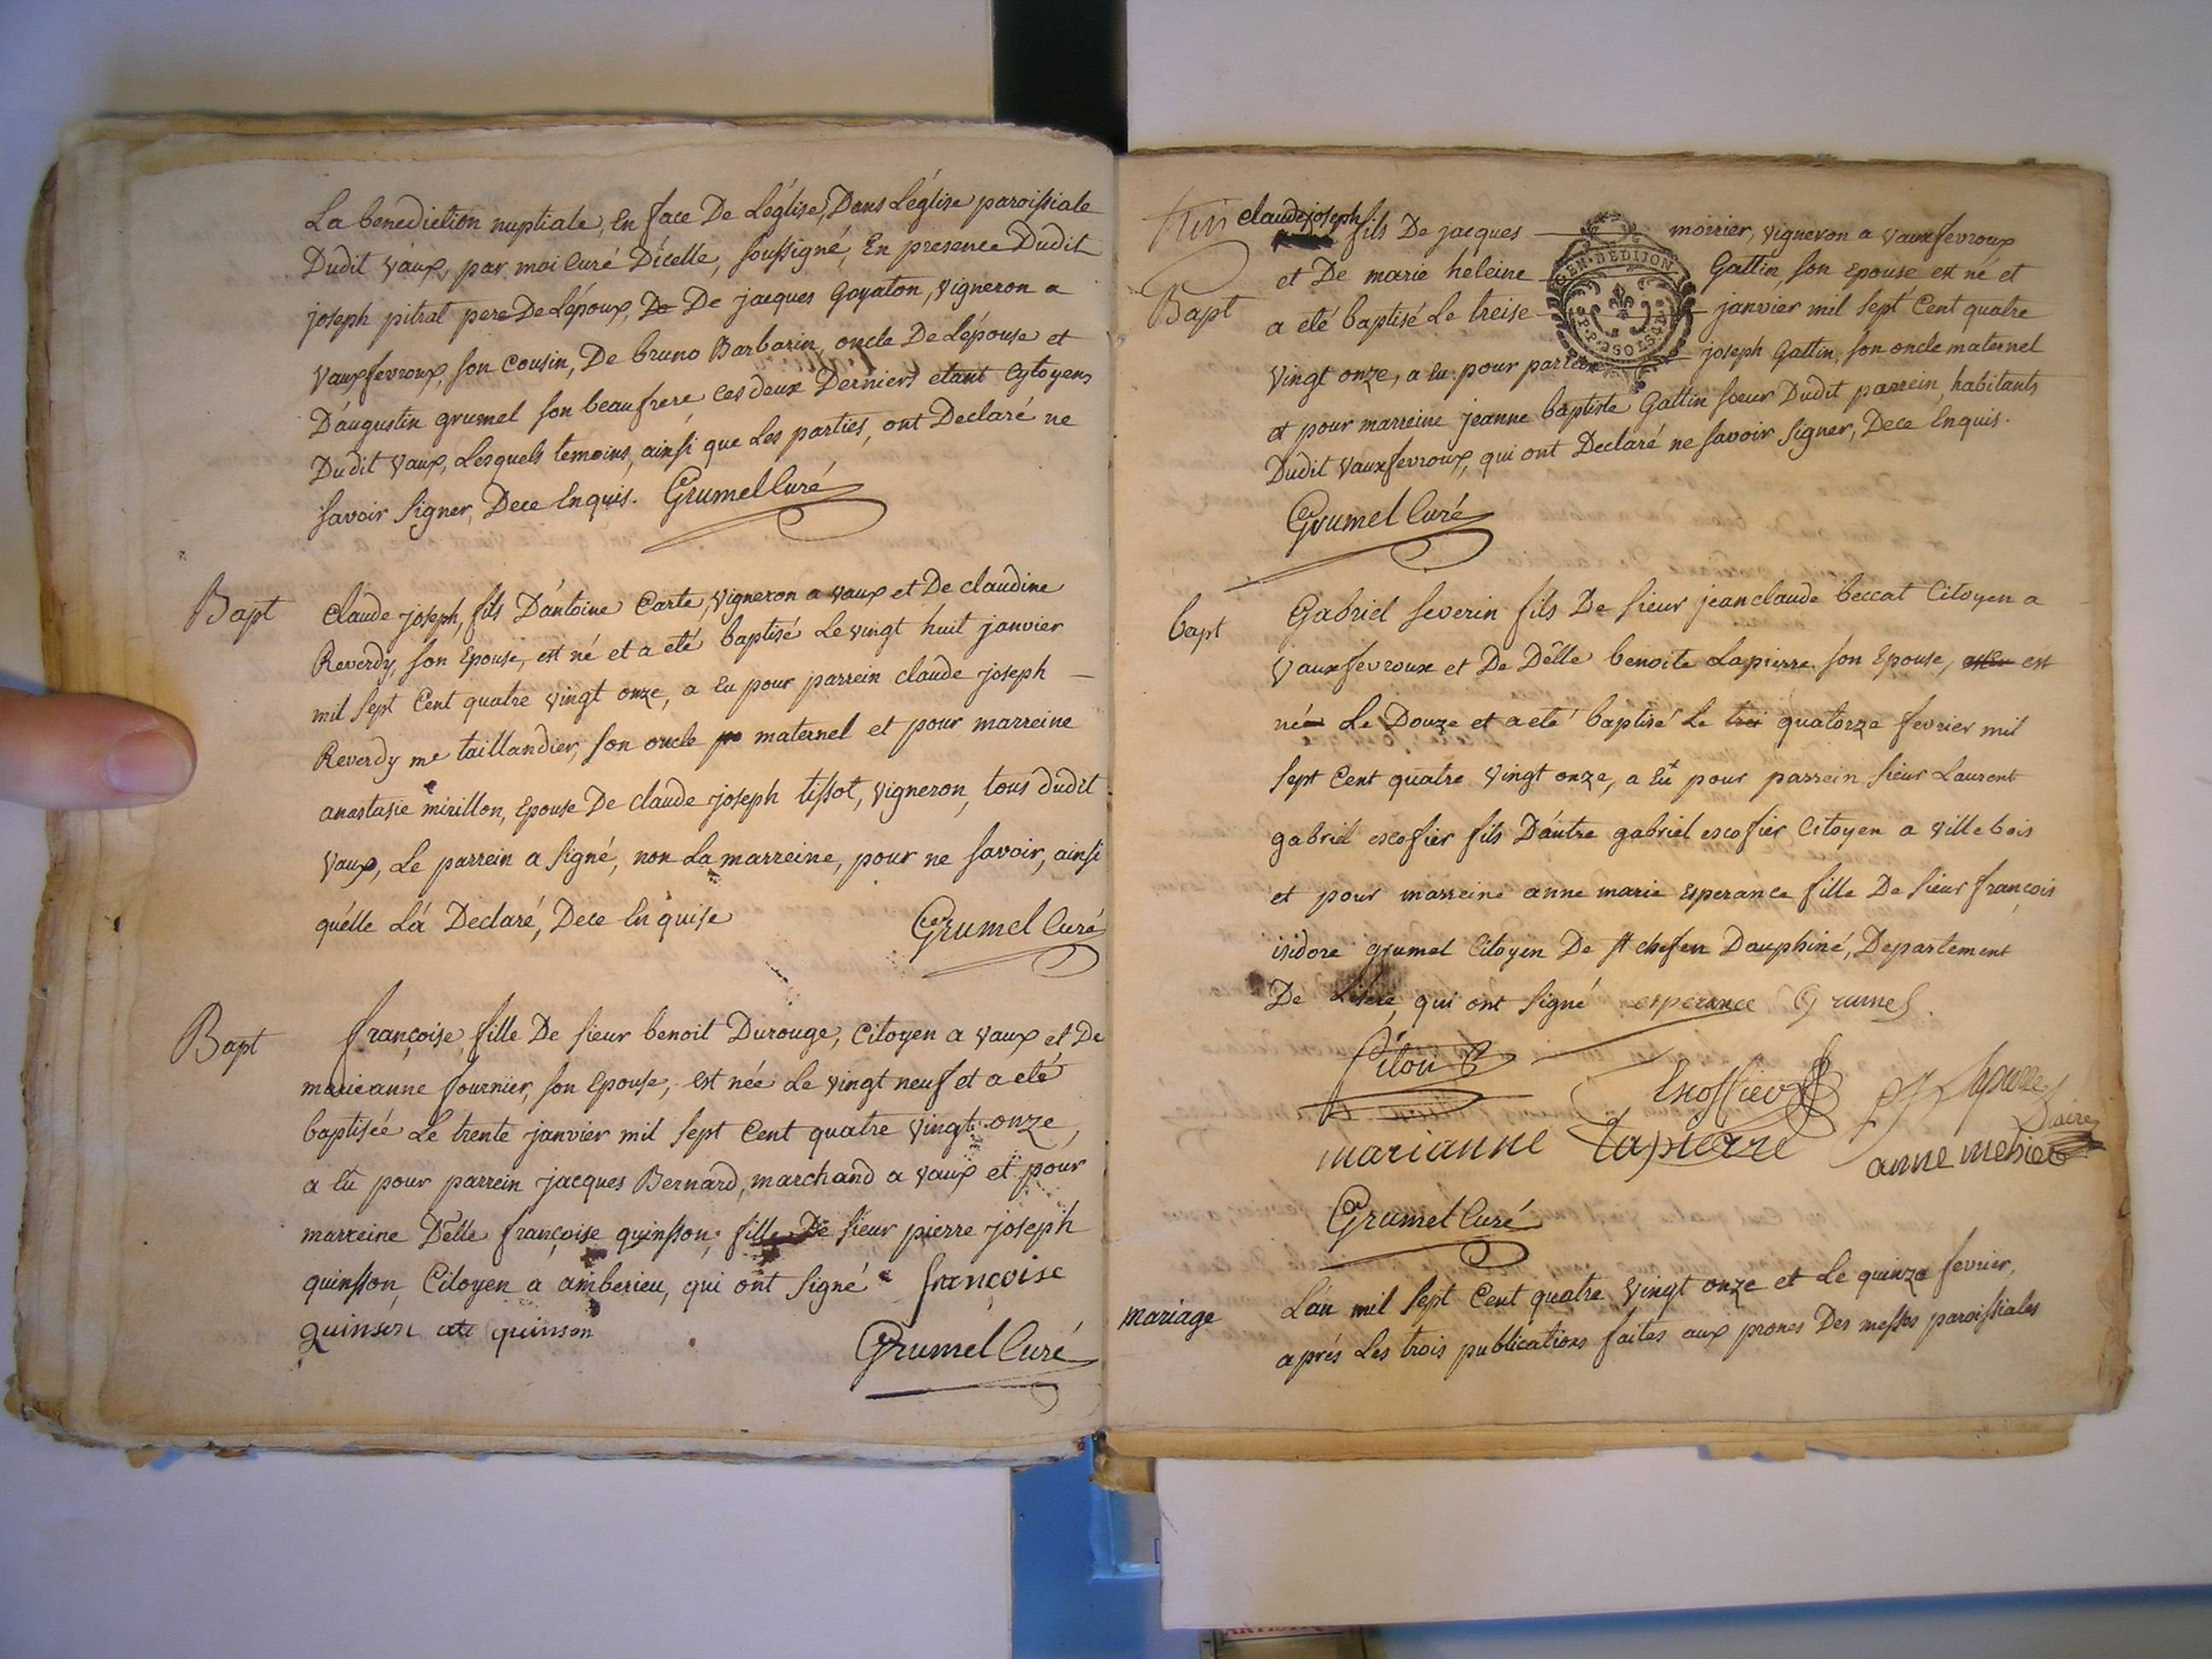 La benediction nuptiale, En face De Léglise, Dans Léglise paroissiale
Dudit Vaux, par moi Curé Dícelle, soussigné, En presence Dudit
joseph pitrat pere De Lépoux, De De jacques Goyaton, vigneron a
Vauxfevroux, son Cousin, De bruno Barbarin, oncle De Lépouse et
D'augustin grumel son beaufrere ces deux Derniers etant Cytoyens
Dudit Vaux, Lesquels temoins, ainsi que Les parties, ont Declaré ne
savoir signer, Dece Enquis. Grumel Curé
Bapt
Claude joseph, fils D'antoine Carte, vigneron a vaux et De claudine
Reverdy, son Epouse, est né et a eté baptisé Le vingt huit janvier
mil sept Cent quatre vingt onze, a Eu pour parrein claude joseph
Reverdy me taillandier, son oncle maternel et pour marreine
anastasie mirillon, Epouse De claude joseph tissot, vigneron, tous dudit
Vaux, Le parrein a signé, non La marreine, pour ne savoir, ainsi
quélle Lá Declaré, Dece En quise
Grumel Curé
Bapt
françoise, fille De sieur benoit Durouge, Citoyen a vaux et De
marieanne fournier, son Epouse, est née Le vingt neuf et a eté
baptisée Le trente janvier mil sept Cent quatre vingt onze,
a Eu pour parrein jacques Bernard, marchand a vaux et pour
marreine Délle françoise quinsson, fille De sieur pierre joseph
quinsson, Citoyen a amberieu, qui ont signé françoise
quinson quinson
Grumel Curé
Bapt
claude joseph
fils De jacques moirier, vigneron a vauxfevroux
et De marie heleine Gattin, son Epouse est né et
a eté baptisé Le treise janvier mil sept Cent quatre
GEN. DE DIJON
Vingt onze, a Eu pour parrein joseph Gattin, son oncle maternel
et pour marreine jeanne baptiste Gattin soeur Dudit parrein, habitants
Dudit Vauxfevroux, qui ont Declaré ne savoir signer, Dece Enquis.
Grumel Curé
bapt
Gabriel severin fils De sieur jeanclaude beccat Citoyen a
Vauxfevroux et De Délle benoite Lapierre son Epouse, est
né Le Douze et a eté baptisé Le quatorze fevrier mil
sept Cent quatre vingt onze, a Eu pour parrein sieur Laurent
gabriel escofier fils Dáutre gabriel escofier Citoyen a villebois
et pour marreine anne marie Esperance fille De sieur françois
isidore grumel Citoyen De st chef en Dauphiné, Departement
De Lisere, qui ont signé esperance Grumel
Escoffier
marianne Lapierre anne
Grumel Curé
Mariage
Lán mil sept Cent quatre vingt onze et Le quinze fevrier,
aprés Les trois publications faites aux prones Des messes paroissiales